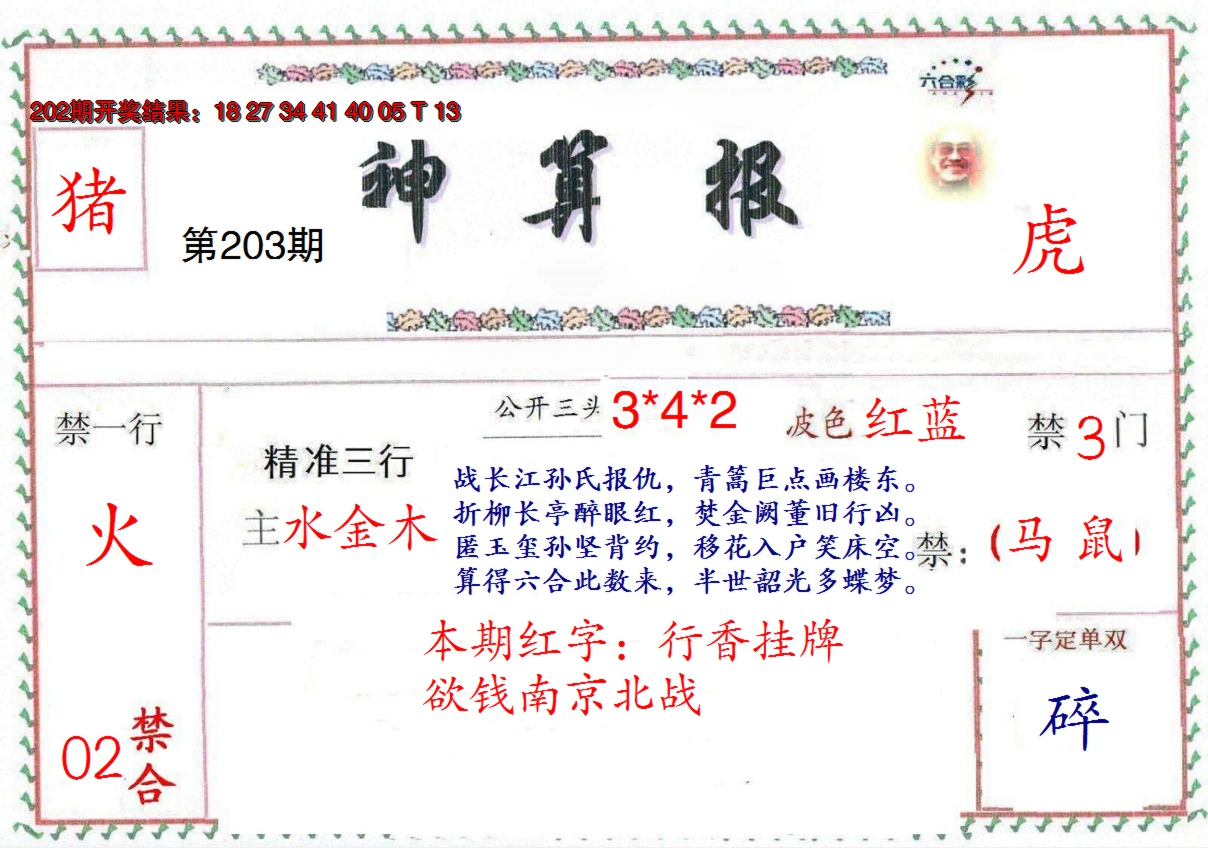 六合彩
202期开奖结果：18 27 34 41 40 05 T 13
神算报
猪
第203期
虎
禁一行
火
02
禁合
精准三行
主水金木
公开三头 3*4*2
波色 红蓝
禁3门
禁：（马 鼠）
战长江孙氏报仇，青篙巨点画楼东。
折柳长亭醉眼红，焚金阙董旧行凶。
匿玉玺孙坚背约，移花入户笑床空。
算得六合此数来，半世韶光多蝶梦。
本期红字：行香挂牌
欲钱南京北战
一字定单双
碎